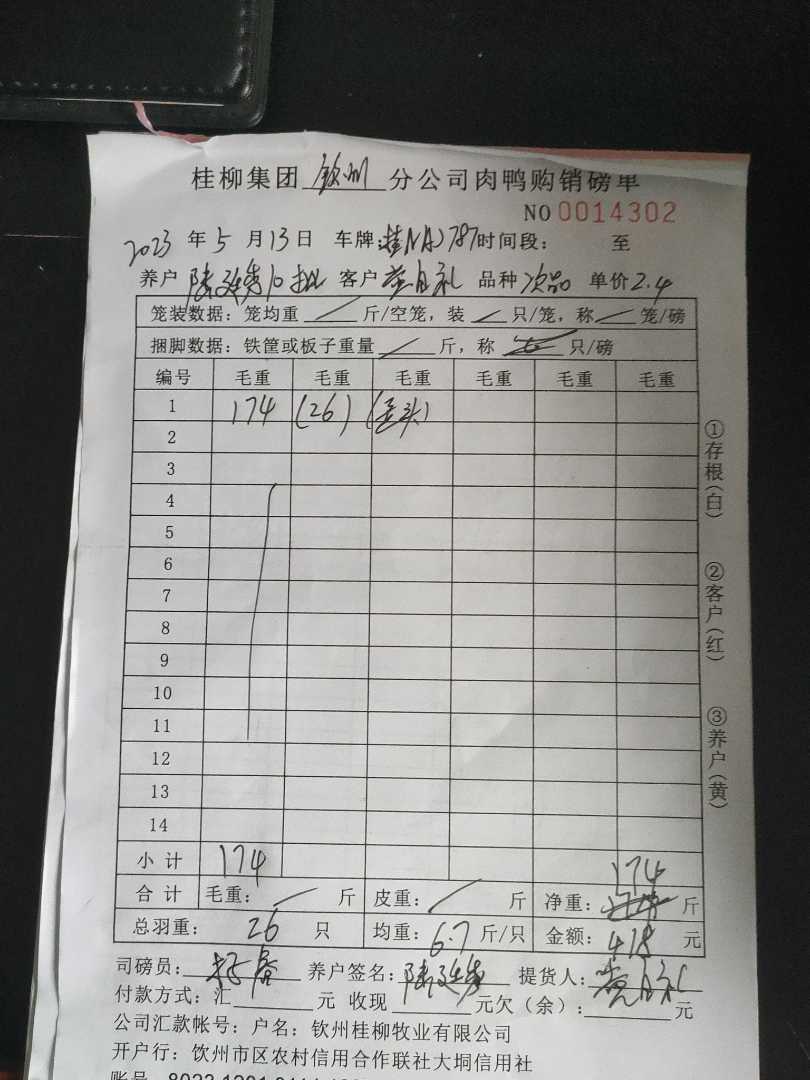 桂柳集团 钦州 分公司肉鸭购销磅单
NO 0014302
2023 年 5 月 13 日 车牌: 桂NA 787 时间段: 至
养户 陆廷秀10批 客户 品种 次品 单价 2.4
笼装数据: 笼均重 / 斤/空笼, 装 / 只/笼, 称 / 笼/磅
捆脚数据: 铁筐或板子重量 / 斤, 称 只/磅
编号 毛重 毛重 毛重 毛重 毛重 毛重
1 174 (26) (歪头)
2
3
4
5
6
7
8
9
10
11
12
13
14
小计 174 174
合计 毛重: / 斤 皮重: / 斤 净重: 斤
总羽重: 26 只 均重: 6.7 斤/只 金额: 418 元
司磅员: 养户签名: 陆廷秀 提货人:
付款方式: 汇 元 收现 元欠(余): 元
公司汇款帐号: 户名: 钦州桂柳牧业有限公司
开户行: 饮州市区农村信用合作联社大垌信用社
①存根(白)
②客户(红)
③养户(黄)